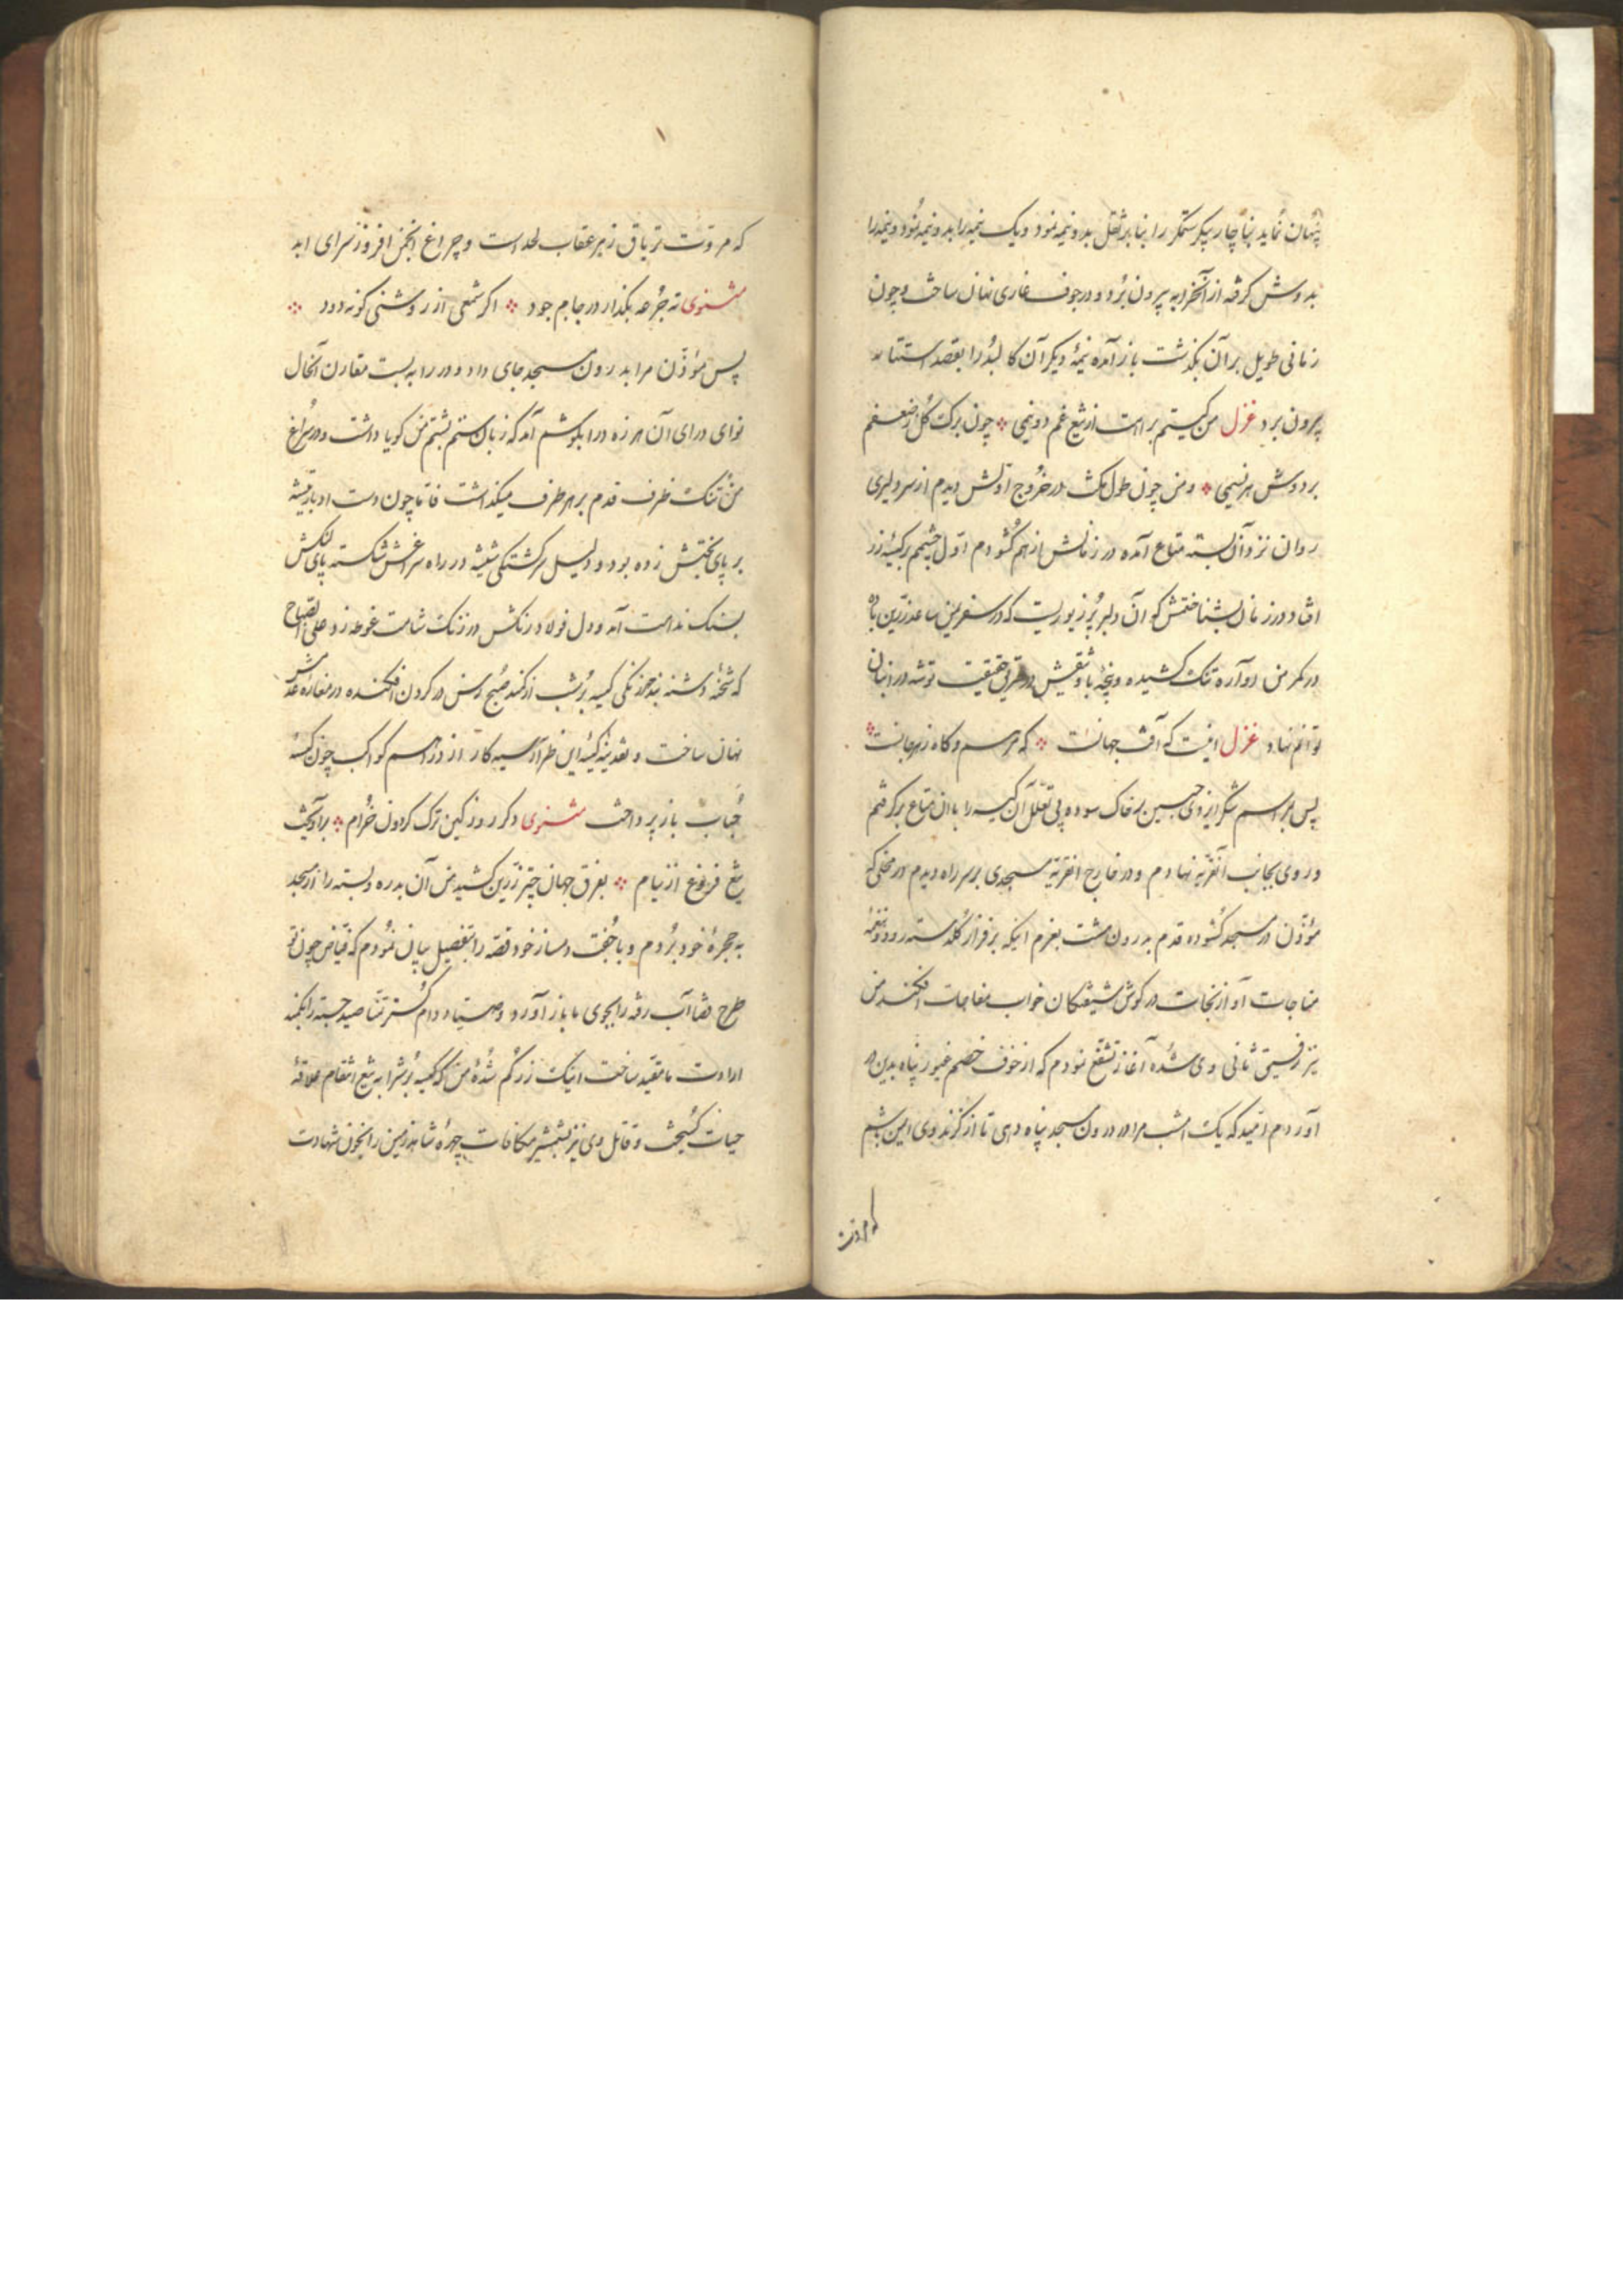 پنهان نماید بناچار پیکر ستمکر را بنا بر ثقل بدو نیمه نمود و یک نیمه را
بدوش کرفته از آنخرابه بیرون برد و در جوف غاری نهان ساخت و چون
زمانی طویل بر آن بگذشت باز آمده نیمهٔ دیکر آن کالبد را بقصد استتار
بیرون برد غزل من کیستم براهت از تیغ غم دو نیمی چون برک کل ز ضعفم
بر دوش هر نسیمی و من چون طول مکث در خروج اولش دیدم از سر دلیری
روان نزد آن بسته متاع آمده در زمانش از هم کشودم اول چشمم بر کیسهٔ زر
افتاد در زمان بشناختمش کو آن دلبر پر زیوریست که در سفر این ساعد زرین
در کمر من آواره تنک کشیده و پنجهٔ با توفیقش در طریق حقیقت توشه در انبان
توانم نهاد غزل اینست که آفت جهانست که مرهم و کاه زهر جانست
پس بمراسم شکر ایزدی جبین بر خاک سوده بی تعلل آن کیسه را با آن متاع برکرفتم
و روی بجانب آنقریه نهادم و در خارج آنقریه مسجدی بر سر راه دیدم در محلی که
مؤذن در مسجد کشوده قدم بدرون هشت بعزم اینکه بر فراز کلدسته رود و نغمهٔ
مناجات آواز نجات در کوش شیفتکان خواب مفاجات افکند من
نیز رفیق ثانی وی شده آغاز تشفع نمودم که از خوف خصم غیور پناه بدین در
آوردم امید که یک امشب مرا در درون مسجد پناه دهی تا از کزند وی ایمن باشم
که مروت
که مروت تریاق زهر عقاب لحد است و چراغ انجمن افروز سرای ابد
مثنوی ته جرعه بکذار در جام جود اکر شمعی از روشنی کو نه دود
پس مؤذن مرا بدرون مسجد جای داد و در را به بست مقارن آنحال
نوای درای آن هرزه درا بکوشم آمد که زبان ستم بشتم من کویا داشت و در سراغ
من تنک ظرف قدم بر هر طرف میکذاشت فاما چون دست ادبار تیشه
بر پای بختش زده بود و دلیل سرکشتکی شیشه در راه سراغش شکسته پای لنکش
بسنک ندامت آمد و دل فولاد رنکش در زنک شامت غوطه زد علی الصباح
که شحنهٔ دشنه بند خور زنکی کیسه بر شب از کمند صبح رسن در کردن افکنده در مغاره عدمش
نهان ساخت و نقدینهٔ کیسهٔ این طرار سیه کار از دراهم کواکب چون کیسهٔ
حباب باز پرداخت مثنوی دکر روز کین ترک کردون خرام برآهیخت
تیغ فروغ از نیام بفرق جهان چتر زرین کشید من آن بدره و بسته را از مسجد
به حجرهٔ خود بردم و با جفت دمساز خود قصه را بتفصیل بیان نمودم که فیاض چون
طرح قضا آب رفته را بجوی ما باز آورد و صیاد دام کستر تمنا صید جسته را بکمند
ارادت ما مقید ساخت اینک زر کم شدهٔ من که کیسه برش را به تیغ انتقام علاقهٔ
حیات کسیخت و قاتل وی نیز بشمشیر مکافات چهرهٔ شاهد زمین را بخون شهادت